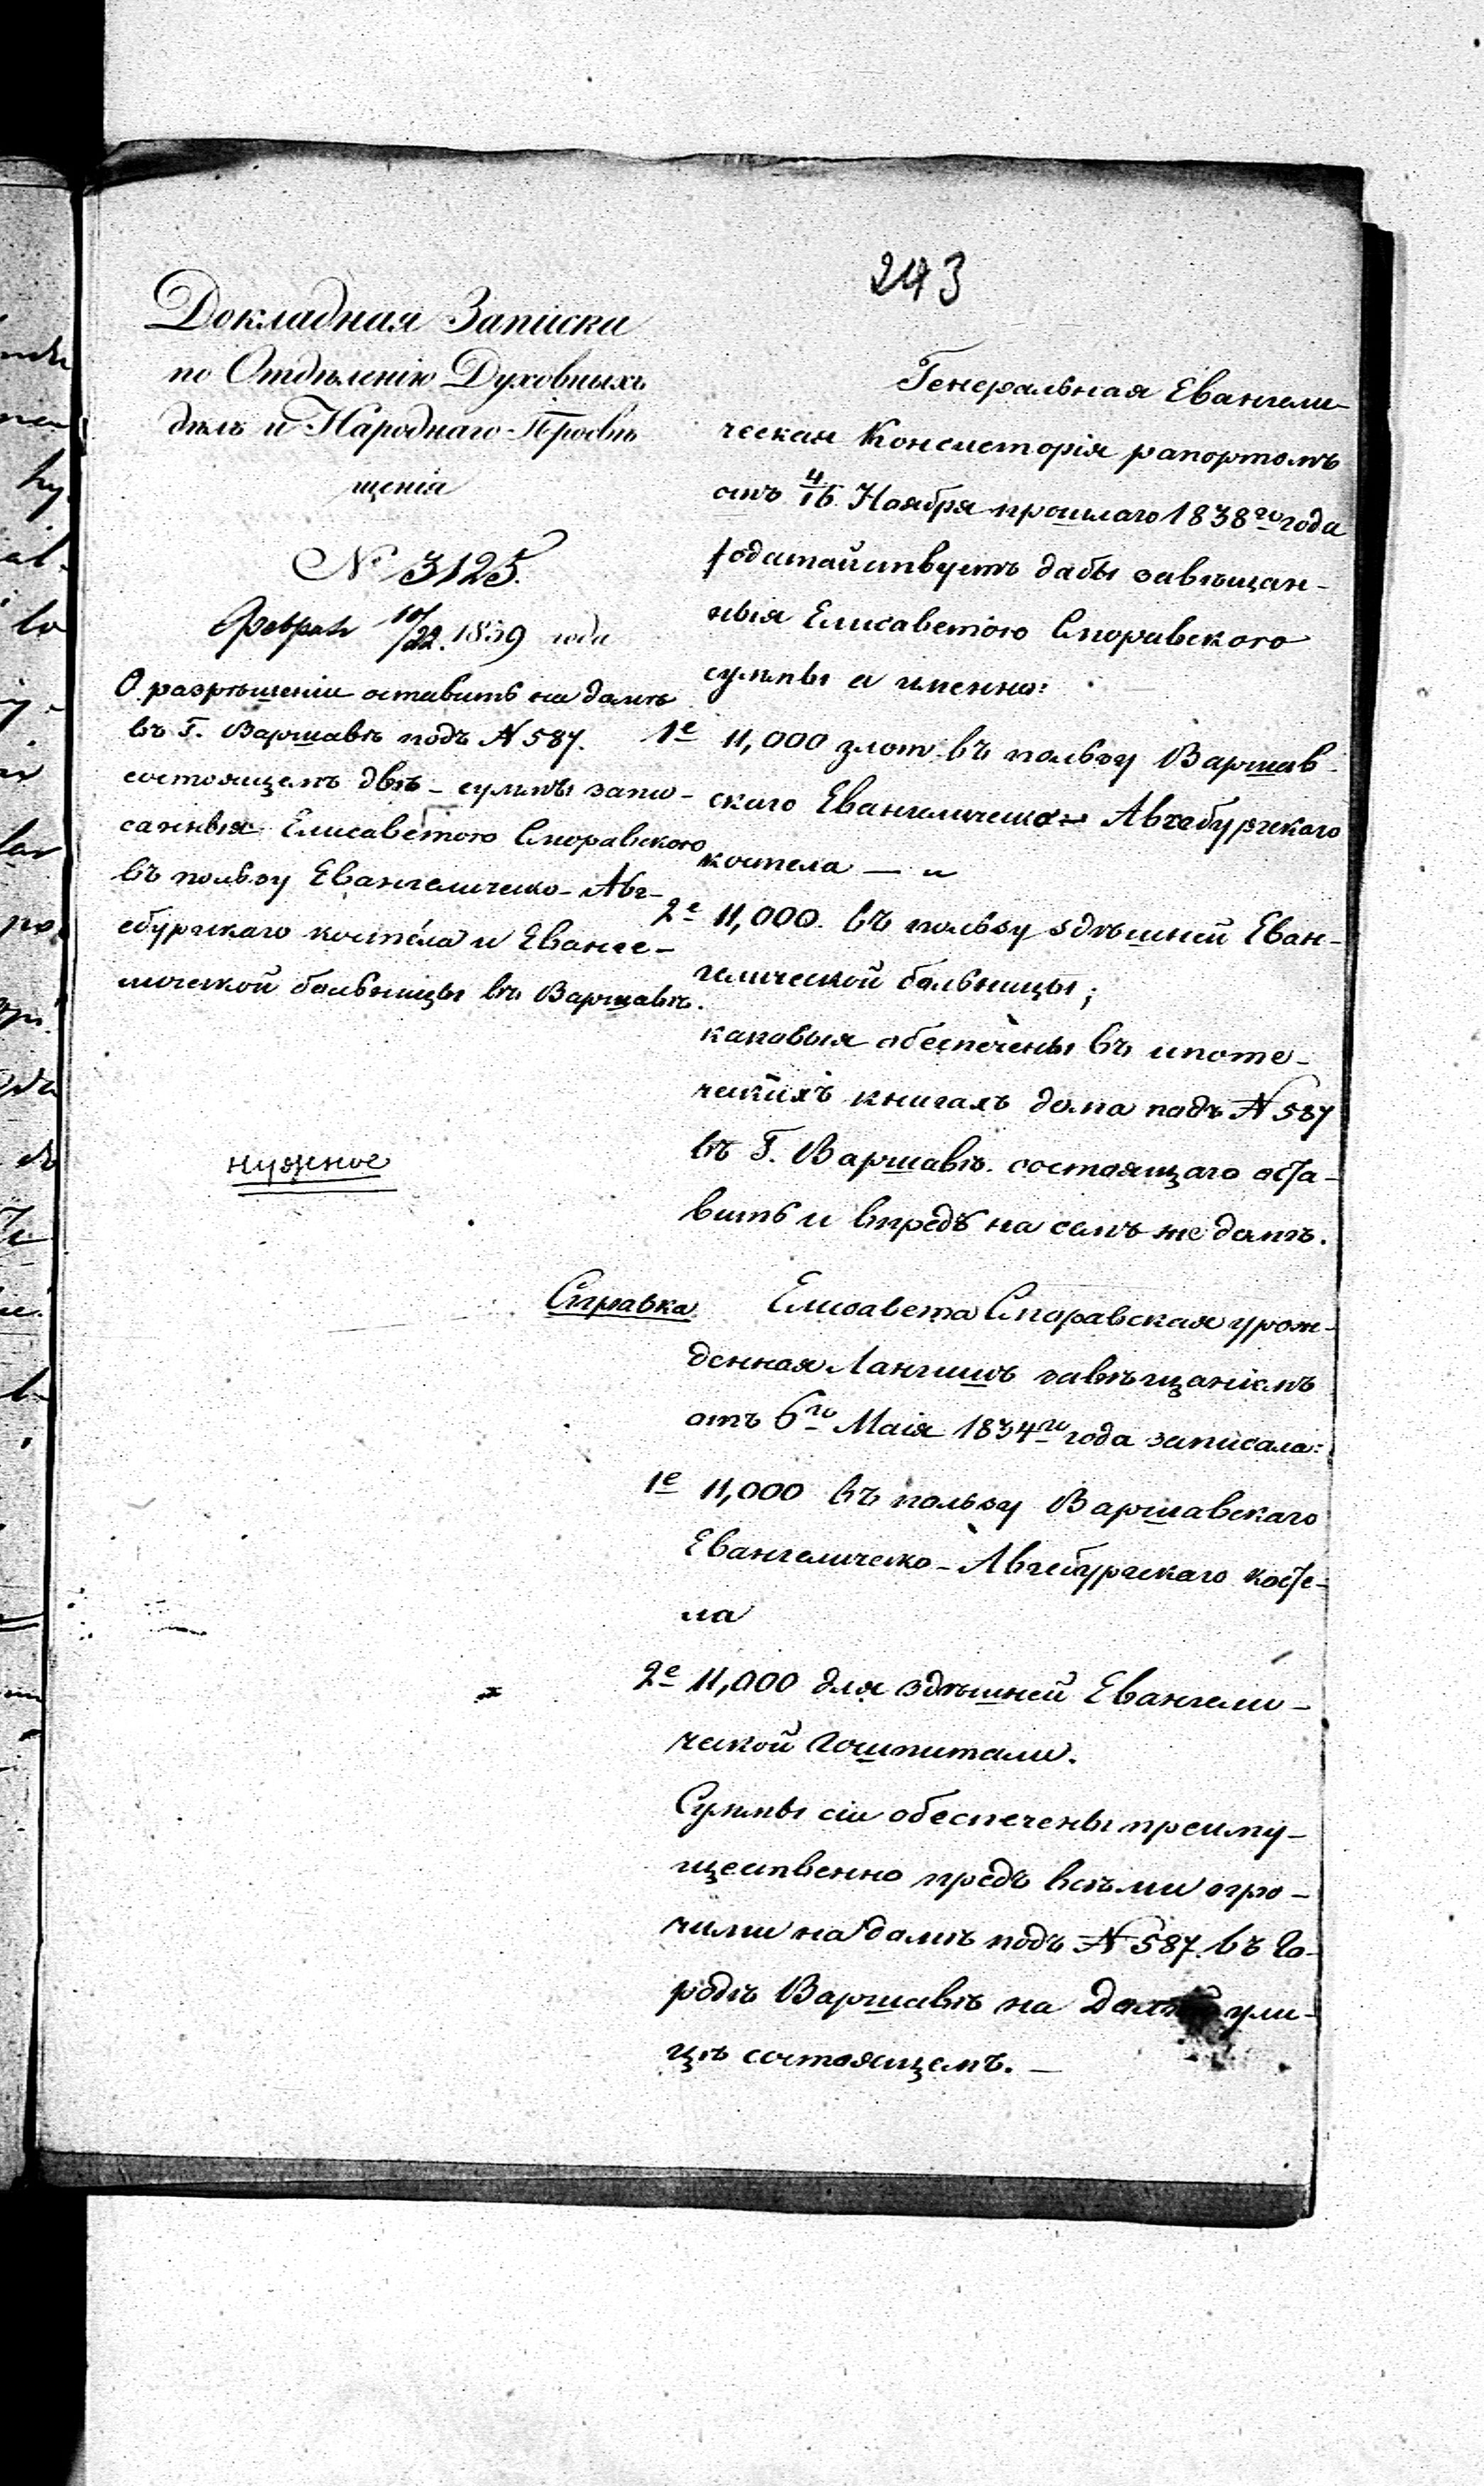 243
Докладная Записка
по Отдѣленію Духовныхъ
дѣлъ и Народнаго Просвѣ
щенія
№ 3125.
Февраля 10/22. 1839 года
О разрѣшеніи оставить на домѣ
въ Г. Варшавѣ подъ № 587.
состоящемъ двѣ - суммы запи-
санныя Елисаветою Споравскою
въ пользу Евангелическо - Авг-
сбургскаго костела и Еванге-
лической больницы въ Варшавѣ.
нужное
Генеральная Евангели-
ческая Консисторія рапортомъ
отъ 4/16 Ноября прошлаго 1838го года
ходатайствуетъ дабы завѣщан-
ныя Елисаветою Споравскою
суммы а именно:
1е 11,000 злот. въ пользу Варшав-
скаго Евангелическо - Авгсбургскаго
костела — и
2е 11,000. въ пользу здѣшней Еван-
гелической больницы;
каковыя обеспечены въ ипоте-
ческихъ книгахъ дома подъ № 587
въ Г. Варшавѣ. состоящаго оста-
вить и впредь на семъ же домѣ.
Справка. Елисавета Споравская урож-
денная Лангишъ завѣщаніемъ
отъ 6го Маія 1834го года записала:
1е 11,000 въ пользу Варшавскаго
Евангелическо - Авгсбургскаго косте-
ла
2е 11,000 для здѣшней Евангели-
ческой гошпитали.
Суммы сіи обеспечены преиму-
щественно предъ всѣми про-
чими на домѣ подъ № 587. въ Го-
родѣ Варшавѣ на ули-
цѣ состоящемъ. —